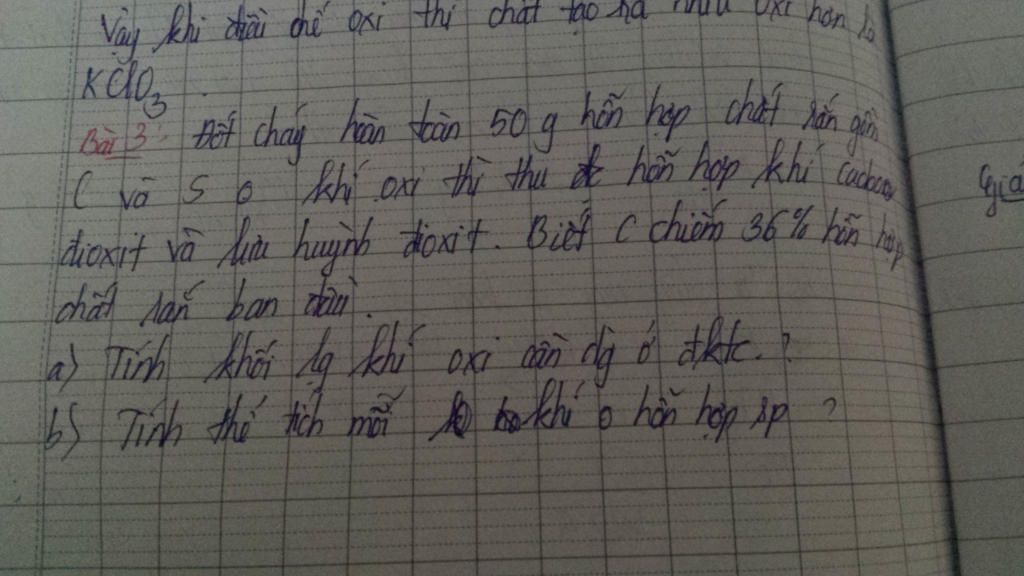 Vậy khi điều chế oxi thì chất tạo ra nhiều oxi hơn là
KClO3.
Bài 3: Đốt cháy hoàn toàn 50 g hỗn hợp chất rắn gồm
C và S o khí oxi thì thu đc hỗn hợp khí cacbon
đioxit và lưu huỳnh đioxit. Biết C chiếm 36% hỗn hợp
chất rắn ban đầu.
a) Tính khối lg khí oxi cần dg ở đktc.?
b) Tính thể tích mỗi khí o hỗn hợp sp ?